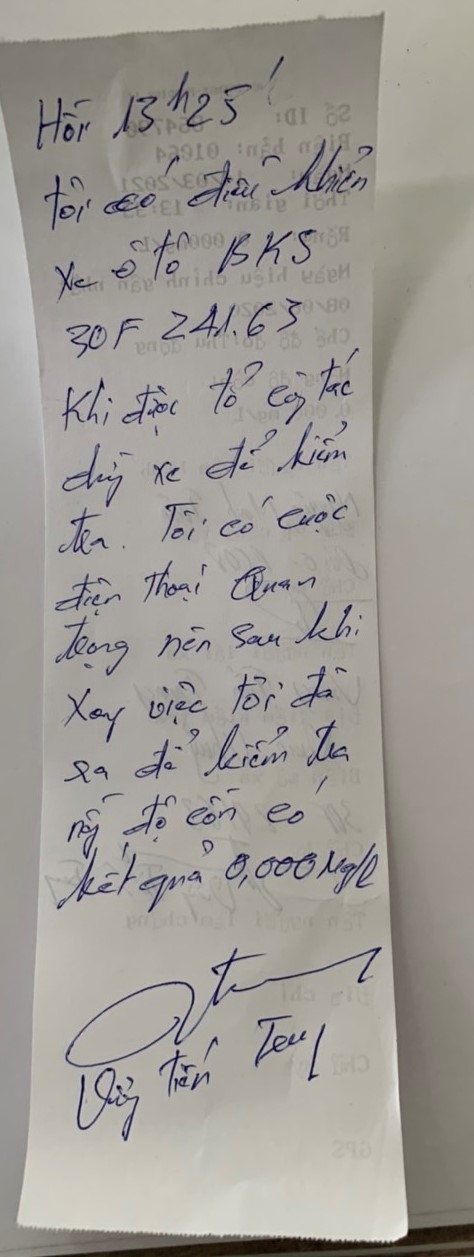 Hồi 13h25'
tôi có điều khiển
xe ô tô BKS
30F 241.63
Khi được tổ công tác
dừng xe để kiểm
tra. Tôi có cuộc
điện thoại Quan
trọng nên sau khi
xong việc tôi đã
ra để kiểm tra
nồng độ cồn có
kết quả 0,000 Mg/l
Tiến